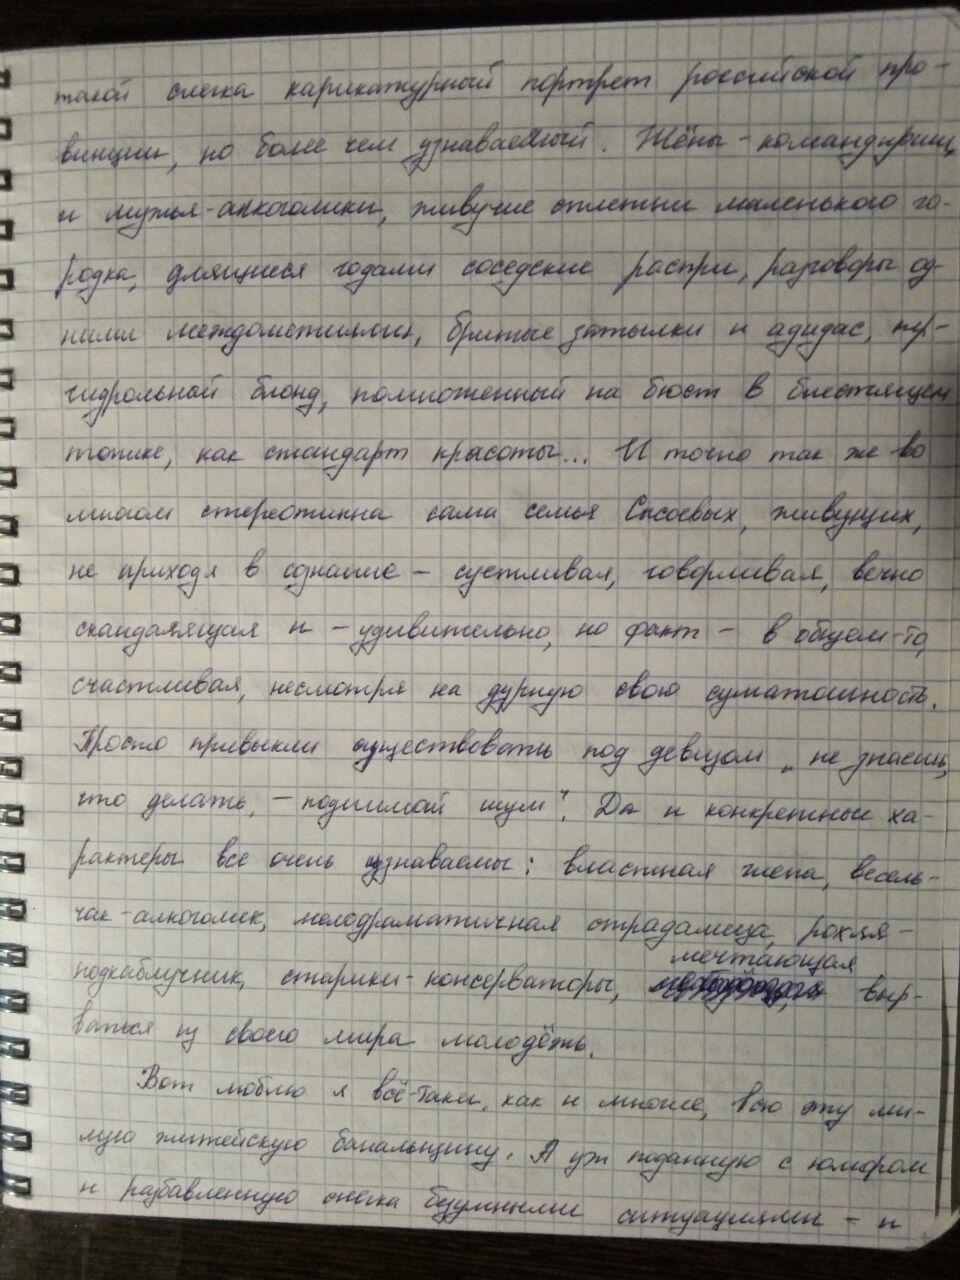 такой слегка карикатурный портрет российской про-
винции, но более чем узнаваемый. Жёны-командирши
и мужья-алкоголики, живучие сплетни маленького го-
родка, длящиеся годами соседские распри, разговоры од-
ними междометиями, бритые затылки и адидас, пер-
гидрольный блонд, помноженный на бюст в блестящем
топике, как стандарт красоты... И точно так же во
многом стереотипна сама семья Сысоевых, живущих,
не приходя в сознание - суетливая, говорливая, вечно
скандалящая и - удивительно, но факт - в общем-то,
счастливая, несмотря на дурную свою суматошность.
Просто привыкли существовать под девизом „не знаешь,
что делать, - поднимай шум". Да и конкретные ха-
рактеры все очень узнаваемы: властная жена, весель-
чак-алкоголик, мелодраматичная страдалица, рохля-
подкаблучник, старики-консерваторы, мечтающая выр-
ваться из своего мира молодёжь.
Вот люблю я всё-таки, как и многие, всю эту ми-
лую житейскую банальщину. А уж поданную с юмором
и разбавленную слегка безумными ситуациями - и